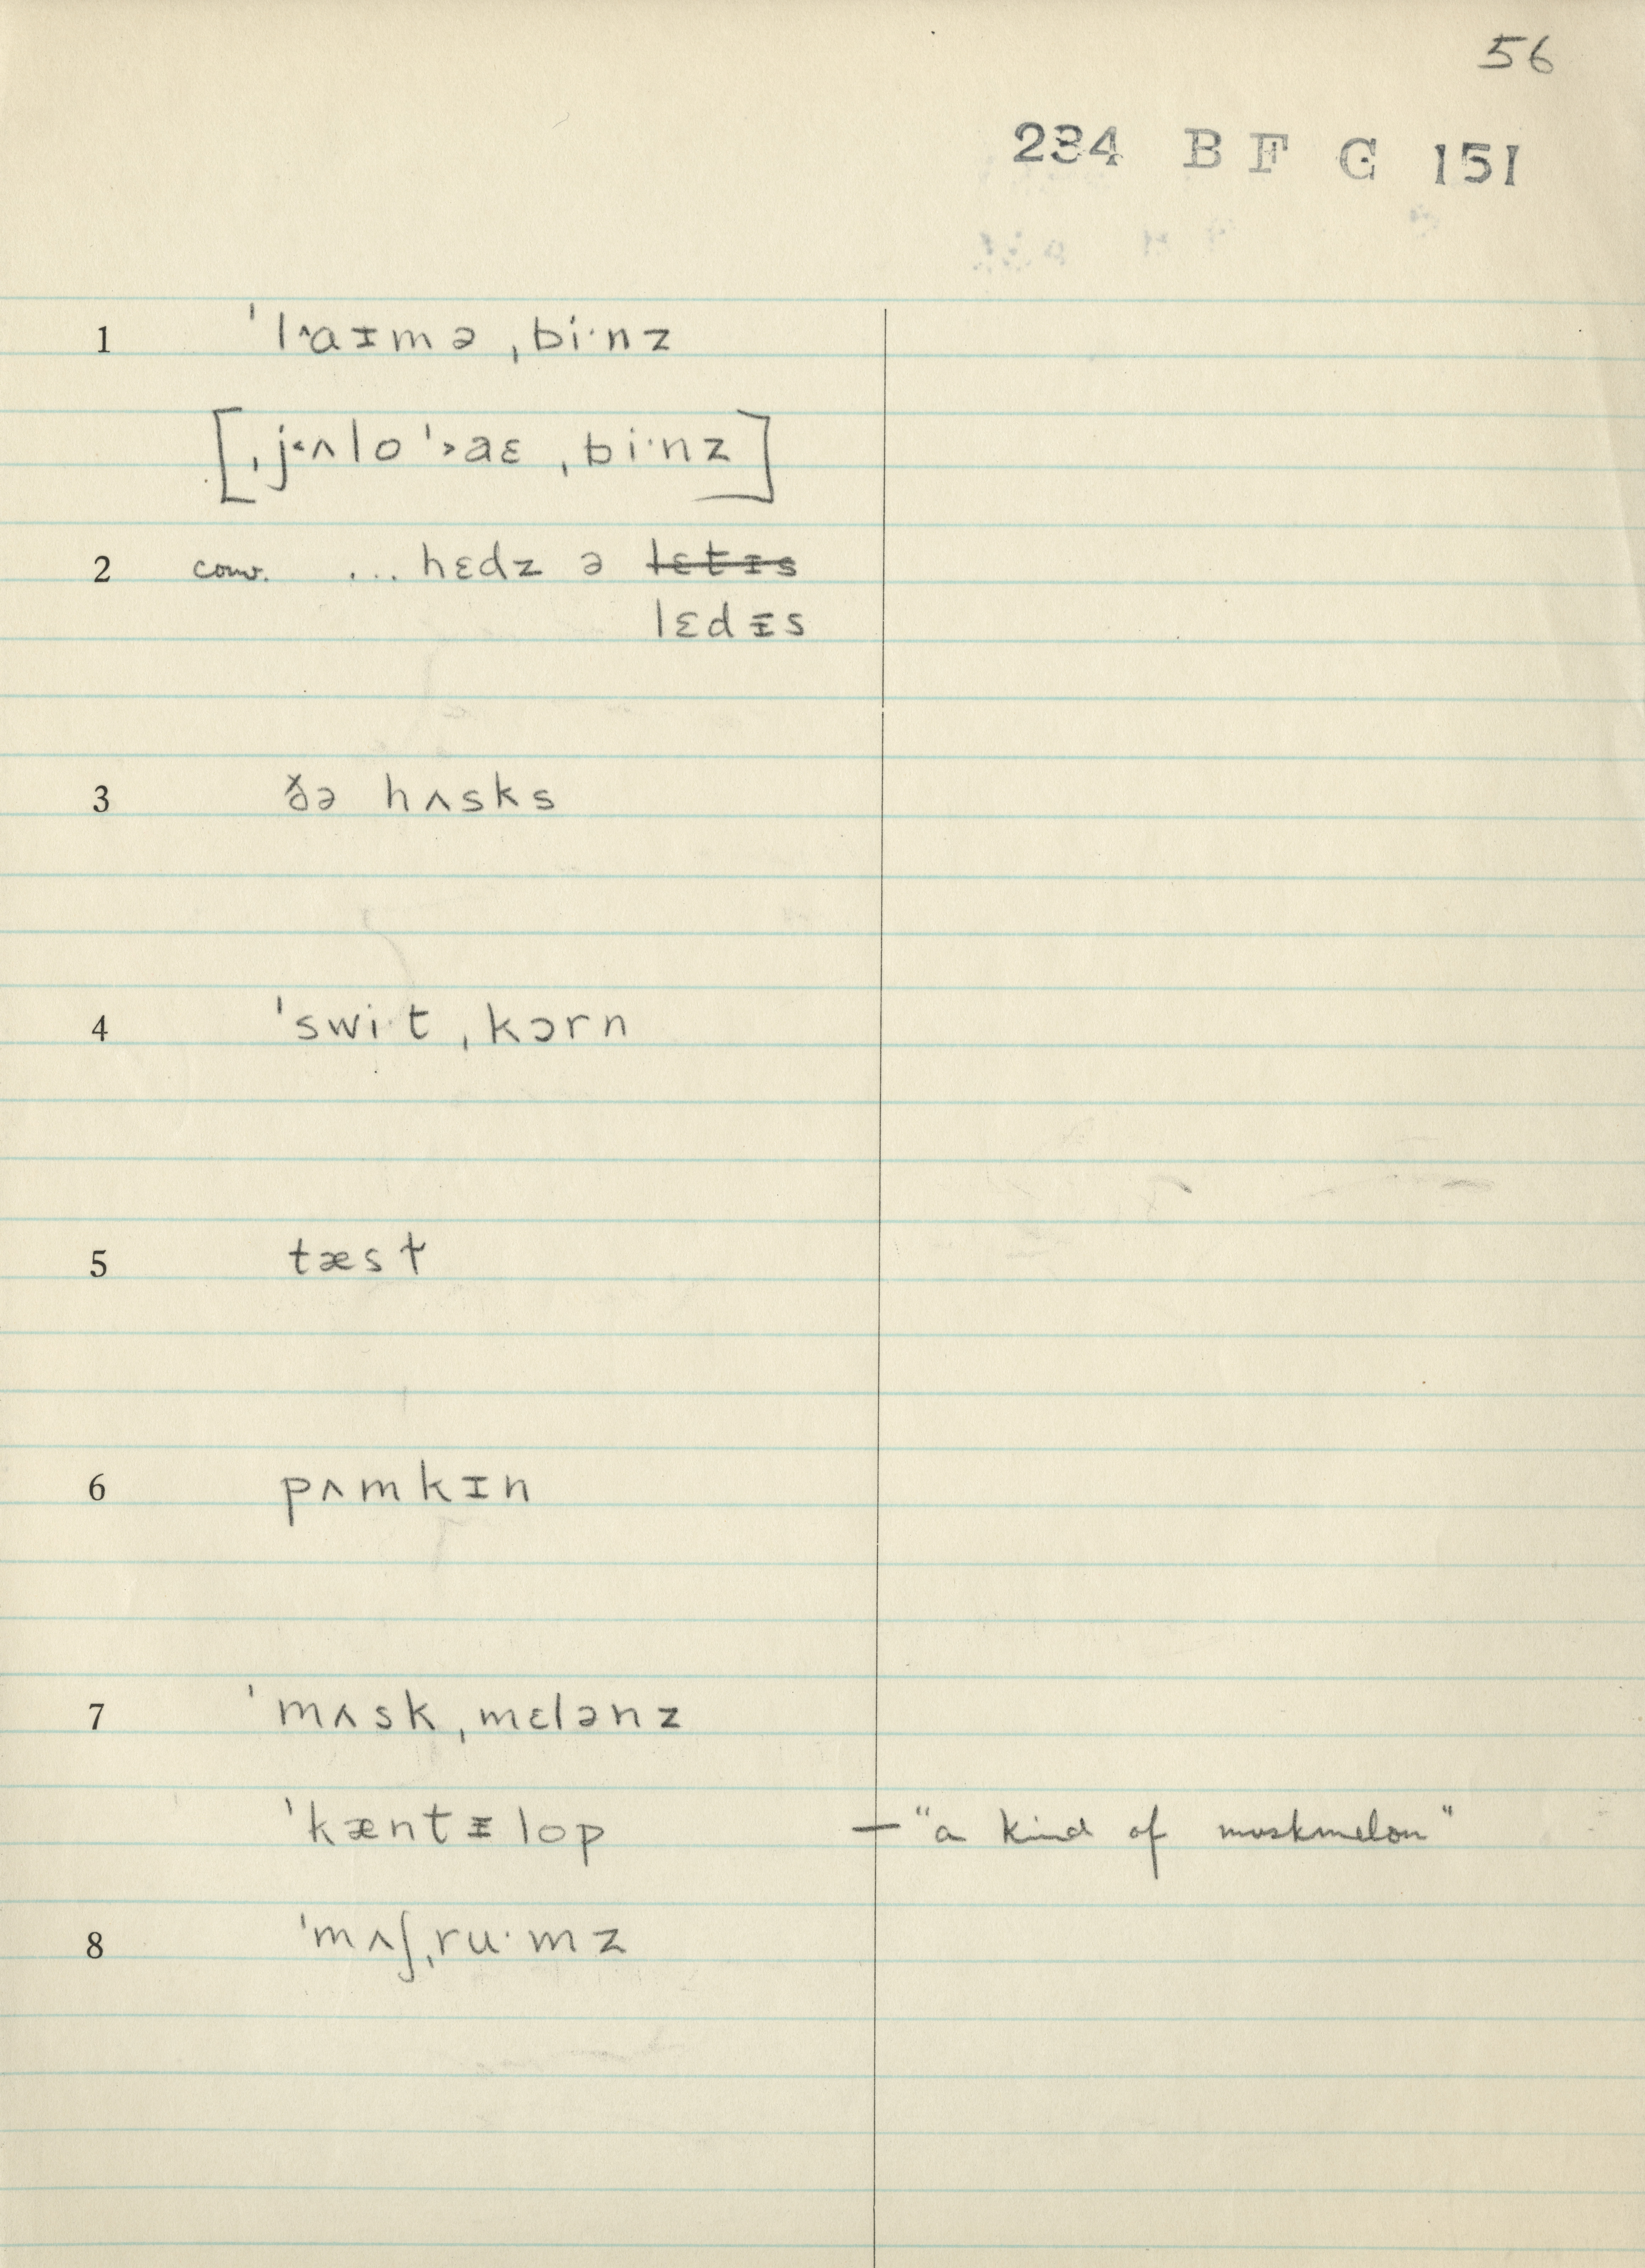 56
234 B F G 151
1 ˈl˄aɪmə ˌbi·nz
[ˌj˂ʌlo ˈ˃aɛ ˌbi·nz]
2 conv. ... hɛdz ə ~~lɛtɪs~~
lɛdᵻs
3 ðə hʌsks
4 ˈswi·t ˌkɔrn
5 tæsɫ
6 pʌmkɪn
7 ˈmʌsk ˌmɛlənz
ˈkæntᵻlop — "a kind of muskmelon"
8 ˈmʌʃˌru·mz